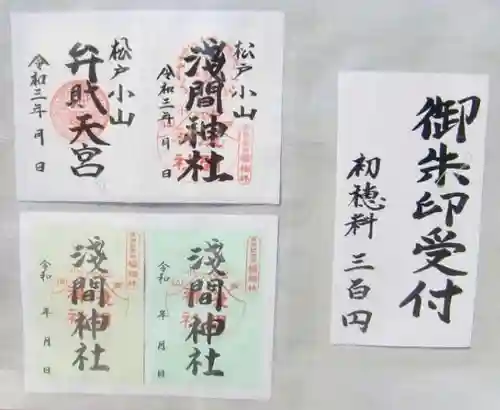 御朱印受付
初穂料 三百円
松戸小山
浅間神社
令和三年 月 日
松戸小山
弁財天宮
令和三年 月 日
浅間神社
令和 年 月 日
浅間神社
令和 年 月 日